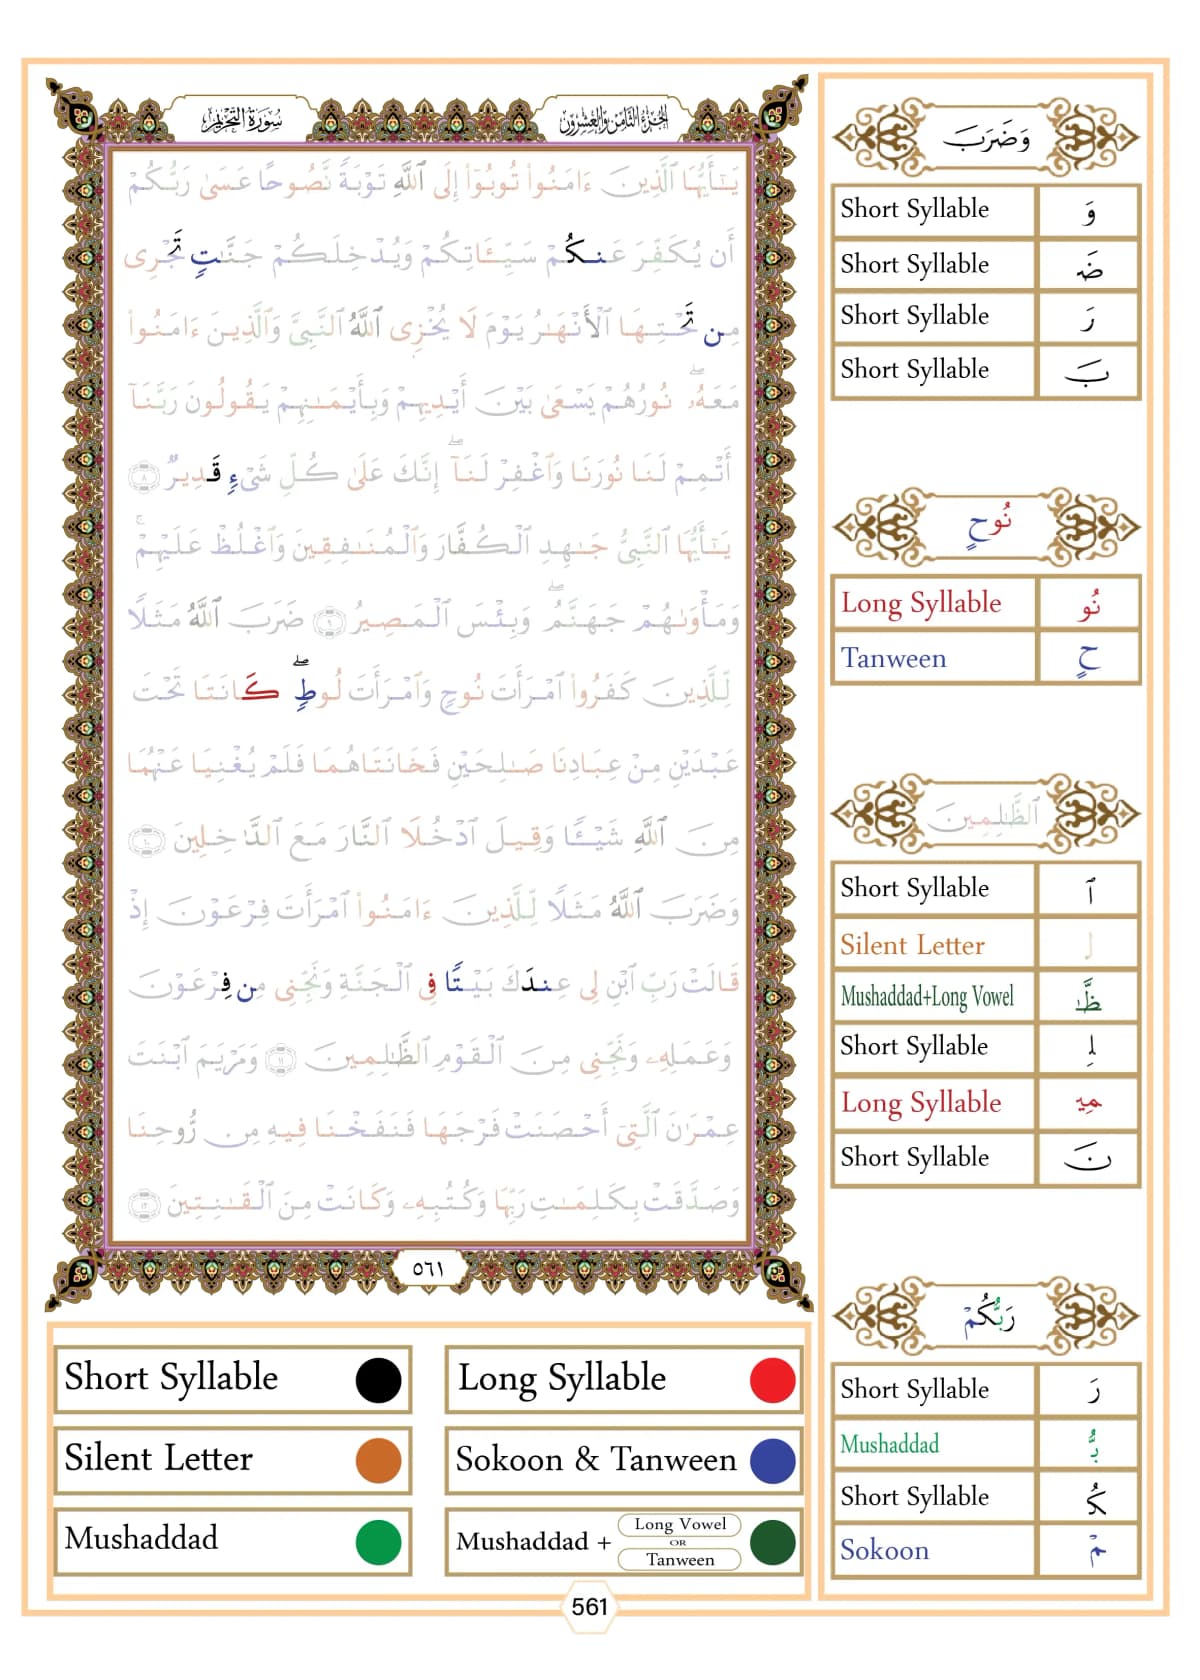 سُورَةُ التَّحْرِيمِ
الجُزْءُ الثَّامِنُ وَالعِشْرُونَ
يَٰٓأَيُّهَا ٱلَّذِينَ ءَامَنُوا۟ تُوبُوٓا۟ إِلَى ٱللَّهِ تَوْبَةً نَّصُوحًا عَسَىٰ رَبُّكُمْ
أَن يُكَفِّرَ عَنكُمْ سَيِّـَٔاتِكُمْ وَيُدْخِلَكُمْ جَنَّٰتٍ تَجْرِى
مِن تَحْتِهَا ٱلْأَنْهَٰرُ يَوْمَ لَا يُخْزِى ٱللَّهُ ٱلنَّبِىَّ وَٱلَّذِينَ ءَامَنُوا۟
مَعَهُۥ ۖ نُورُهُمْ يَسْعَىٰ بَيْنَ أَيْدِيهِمْ وَبِأَيْمَٰنِهِمْ يَقُولُونَ رَبَّنَآ
أَتْمِمْ لَنَا نُورَنَا وَٱغْفِرْ لَنَآ ۖ إِنَّكَ عَلَىٰ كُلِّ شَىْءٍ قَدِيرٌ ٨
يَٰٓأَيُّهَا ٱلنَّبِىُّ جَٰهِدِ ٱلْكُفَّارَ وَٱلْمُنَٰفِقِينَ وَٱغْلُظْ عَلَيْهِمْ ۚ
وَمَأْوَىٰهُمْ جَهَنَّمُ ۖ وَبِئْسَ ٱلْمَصِيرُ ٩ ضَرَبَ ٱللَّهُ مَثَلًا
لِّلَّذِينَ كَفَرُوا۟ ٱمْرَأَتَ نُوحٍ وَٱمْرَأَتَ لُوطٍ ۖ كَانَتَا تَحْتَ
عَبْدَيْنِ مِنْ عِبَادِنَا صَٰلِحَيْنِ فَخَانَتَاهُمَا فَلَمْ يُغْنِيَا عَنْهُمَا
مِنَ ٱللَّهِ شَيْـًٔا وَقِيلَ ٱدْخُلَا ٱلنَّارَ مَعَ ٱلدَّٰخِلِينَ ١٠
وَضَرَبَ ٱللَّهُ مَثَلًا لِّلَّذِينَ ءَامَنُوا۟ ٱمْرَأَتَ فِرْعَوْنَ إِذْ
قَالَتْ رَبِّ ٱبْنِ لِى عِندَكَ بَيْتًا فِى ٱلْجَنَّةِ وَنَجِّنِى مِن فِرْعَوْنَ
وَعَمَلِهِۦ وَنَجِّنِى مِنَ ٱلْقَوْمِ ٱلظَّٰلِمِينَ ١١ وَمَرْيَمَ ٱبْنَتَ
عِمْرَٰنَ ٱلَّتِىٓ أَحْصَنَتْ فَرْجَهَا فَنَفَخْنَا فِيهِ مِن رُّوحِنَا
وَصَدَّقَتْ بِكَلِمَٰتِ رَبِّهَا وَكُتُبِهِۦ وَكَانَتْ مِنَ ٱلْقَٰنِتِينَ ١٢
٥٦١
Short Syllable
Long Syllable
Silent Letter
Sokoon & Tanween
Mushaddad
Mushaddad + Long Vowel OR Tanween
561
وَضَرَبَ
Short Syllable وَ
Short Syllable ضَ
Short Syllable رَ
Short Syllable بَ
نُوحٍ
Long Syllable نُو
Tanween حٍ
ٱلظَّٰلِمِينَ
Short Syllable ٱ
Silent Letter ل
Mushaddad+Long Vowel ظَّٰ
Short Syllable لِ
Long Syllable مِي
Short Syllable نَ
رَبُّكُمْ
Short Syllable رَ
Mushaddad بُّ
Short Syllable كُ
Sokoon مْ